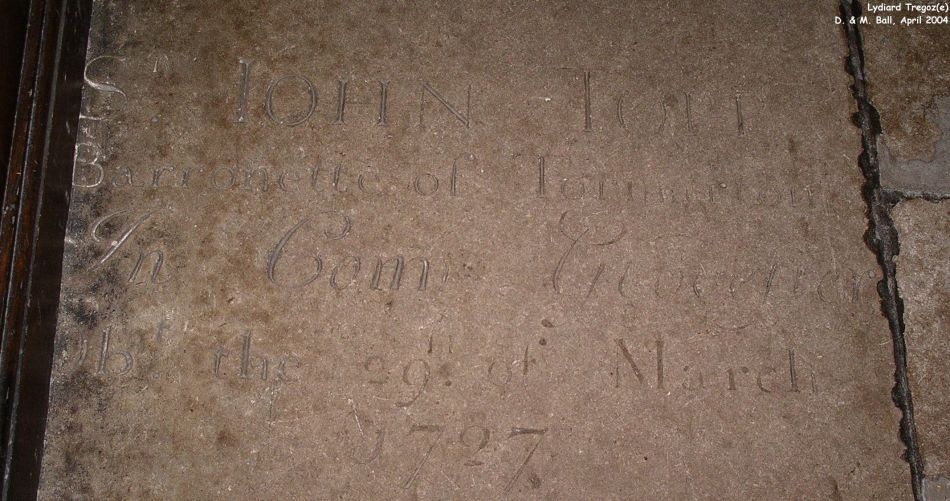 Lydiard Tregoz(e)
D. & M. Ball, April 2004
Sʳ. IOHN
Barronette of Tormarton
In Com
Obᵗ. the 29ᵗʰ. of March
1727